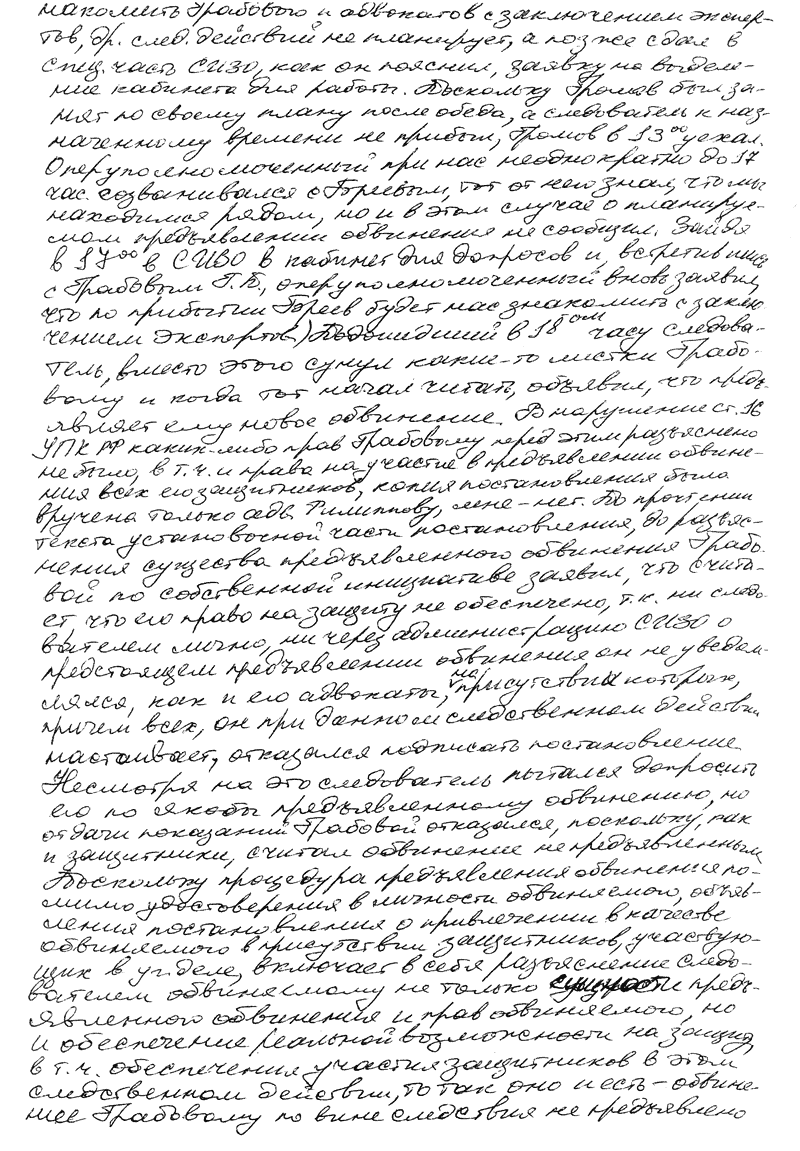 накомить Грабового и адвокатов с заключением экспер-
тов, др. след. действий не планирует, а позже сдал в
спец. часть СИЗО, как он пояснил, заявку на выделе-
ние кабинета для работы. Поскольку Громов был за-
нят по своему плану после обеда, а следователь к наз-
наченному времени не прибыл, Громов в 13⁰⁰ уехал.
Оперуполномоченный при нас неоднократно до 17
час. созванивался с Гореевым, тот от него знал, что мы
находимся рядом, но и в этом случае о планируе-
мом предъявлении обвинения не сообщил. Зайдя
в 17⁰⁰ в СИЗО в кабинет для допросов и, встретившись
с Грабовым Г.П., оперуполномоченный вновь заявил,
что по прибытии Гореев будет нас знакомить с заклю-
чением экспертов) Подошедший в 18 часу следова-
тель, вместо этого сунул какие-то листки Грабо-
вому и когда тот начал читать, объявил, что предъ-
являет ему новое обвинение. В нарушение ст. 16
УПК РФ каких-либо прав Грабовому перед этим разъяснено
не было, в т.ч. и права на участие в предъявлении обвине-
ния всех его защитников, копия постановления была
вручена только адв. Филиппову, мне - нет. По прочтении
текста установочной части постановления, до разъяс-
нения существа предъявленного обвинения Грабо-
вой по собственной инициативе заявил, что счита-
ет что его право на защиту не обеспечено, т.к. ни следо-
вателем лично, ни через администрацию СИЗО о
предстоящем предъявлении обвинения он не уведом-
лялся, как и его адвокаты, на присутствии которых,
причем всех, он при данном следственном действии
настаивает, отказался подписать постановление.
Несмотря на это следователь пытался допросить
его по якобы предъявленному обвинению, но
от дачи показаний Грабовой отказался, поскольку, как
и защитники, считал обвинение не предъявленным
Поскольку процедура предъявления обвинения по-
мимо удостоверения в личности обвиняемого, объяв-
ления постановления о привлечении в качестве
обвиняемого в присутствии защитников, участвую-
щих в уг. деле, включает в себя разъяснение следо-
вателем обвиняемому не только сущности предъ-
явленного обвинения и прав обвиняемого, но
и обеспечение реальной возможности на защиту,
в т.ч. обеспечения участия защитников в этом
следственном действии, то так оно и есть - обвине-
ние Грабовому по вине следствия не предъявлено